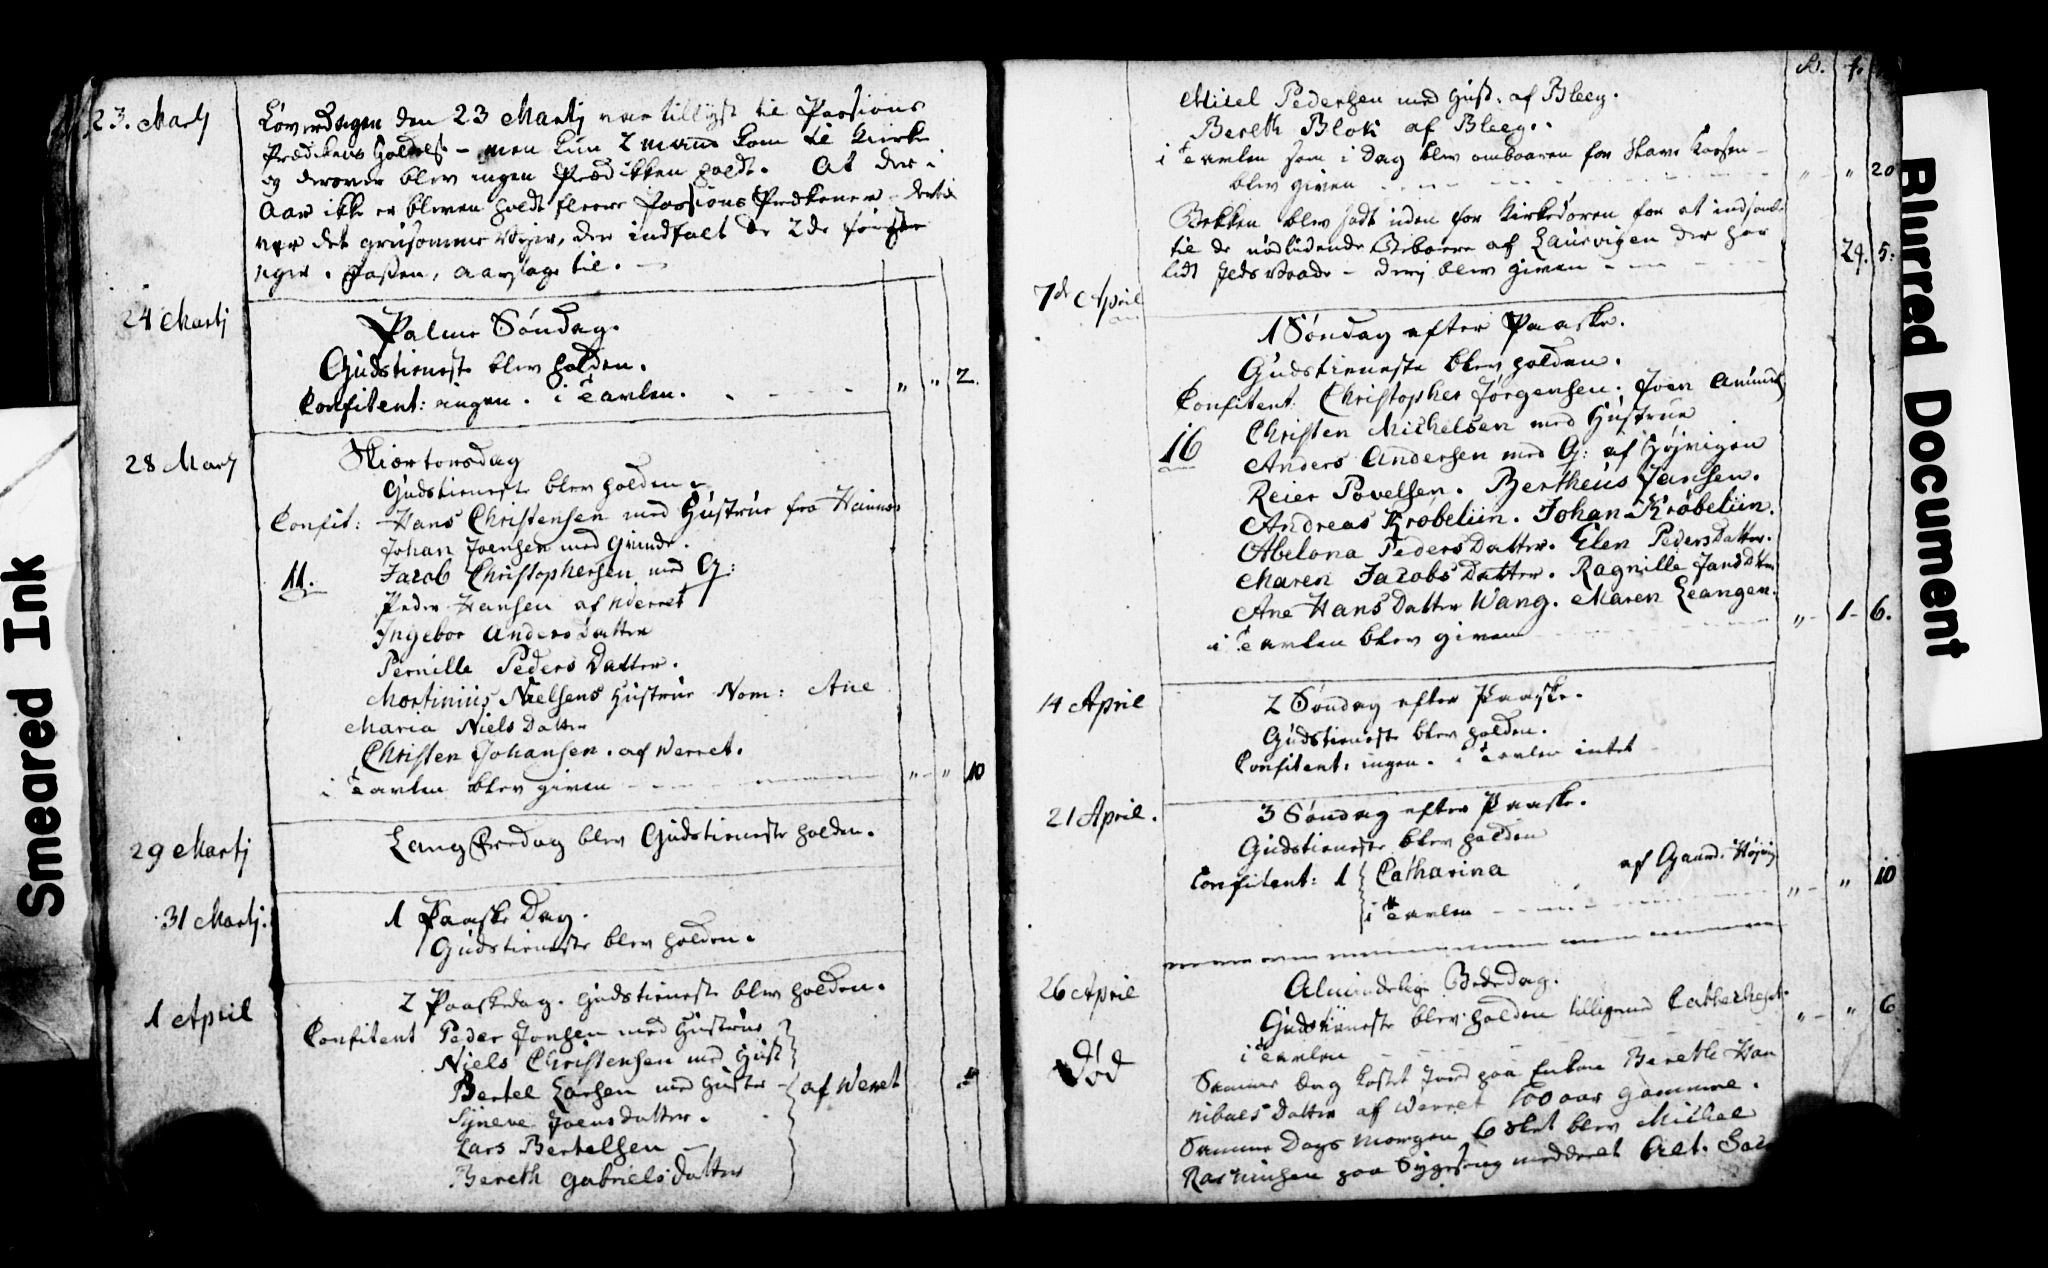 23. Martj
Löverdagen den 23 Martj var tillyst til Passions
Prædikens holdelse - men kun 2 mand kom til Kirke
og derover blev ingen Prædikken holdt. At der i
Aar ikke er bleven holdt fleere Passions Prædkener - dertil
var det grusomme Vejer, der indfalt de 2de første
uger i Fasten, aarsage til.
24 Martj
Palme Söndag.
Gudstieneste blev holden.
Confitent: ingen. i Tavlen. " " 2.
28 Martj
Skiertorsdag
Gudstieneste blev holden.
Confit: Hans Christensen med Hustrue fra
Johan Joensen med Qvinde.
11. Jacob Christophersen med Q:
Peder Hansen af Werret
Ingebor Anders Datter
Pernille Peders Datter.
Mortinius Nielsens Hustrue Nom: Ane
Maria Niels Datter
Christen Johansen. af Werret.
i Tavlen blev given " " 10
29 Martj
Lang Fredag blev Gudstieneste holden.
31 Martj.
1 Paaske Dag.
Gudstieneste blev holden.
1 April
2 Paaskedag. Gudstieneste blev holden.
Confitent Peder Jonsen med Hustrue
Niels Christensen med Hust
Bertel Larsen med Hustr - af Weret
Syneve Joens datter.
Lars Bertelsen
Bereth Gabriels datter
Mikel Pedersen med Hust. af Bleeg.
Bereth Blok af Bleeg.
i Tavlen som i Dag blev ombaaren for
blev given " " 20
Bekken blev sadt uden for Kirkedøren for at indsaml
til de nødlidende Beboere af Laurvigen der har
lidt Ilds Vaade - deri blev given 24. 5.
7de April
1 Söndag efter Paaske.
Gudstieneste blev holden.
Confitent: Christopher Jörgensen. Joen
16 Christen Michelsen med Hustrue
Anders Andersen med Q: af Højvigen
Reier Povelsen. Bertheus Jansen.
Andreas Kröbeliin. Johan Kröbeliin.
Abelona Peders Datter. Elen Peders Datter.
Maren Jacobs Datter. Ragnille Jans Dtter
Ane Hans Datter Wang. Maren Leangen.
i Tavlen blev given " 1 - 6.
14 April
2 Söndag efter Paaske.
Gudstieneste blev holden.
Confitent: ingen. i Tavlen intet
21 April.
3 Söndag efter Paaske.
Gudstieneste blev holden
Confitent: 1 Catharina af Gaard.
i Tavlen " " 10
26 April
Almindelig Bededag.
Gudstieneste blev holden tilligemed
i Tavlen " " 6
Död
Samme Dag kastet Jord paa Enken Bereth Han
nibals Datter af Werret 100 aar gammel.
Samme Dags morgen 6 slet blev Mikkel
Rasmusen paa Sygeseng meddeelt Alt. Sac
Smeared Ink
Blurred Document